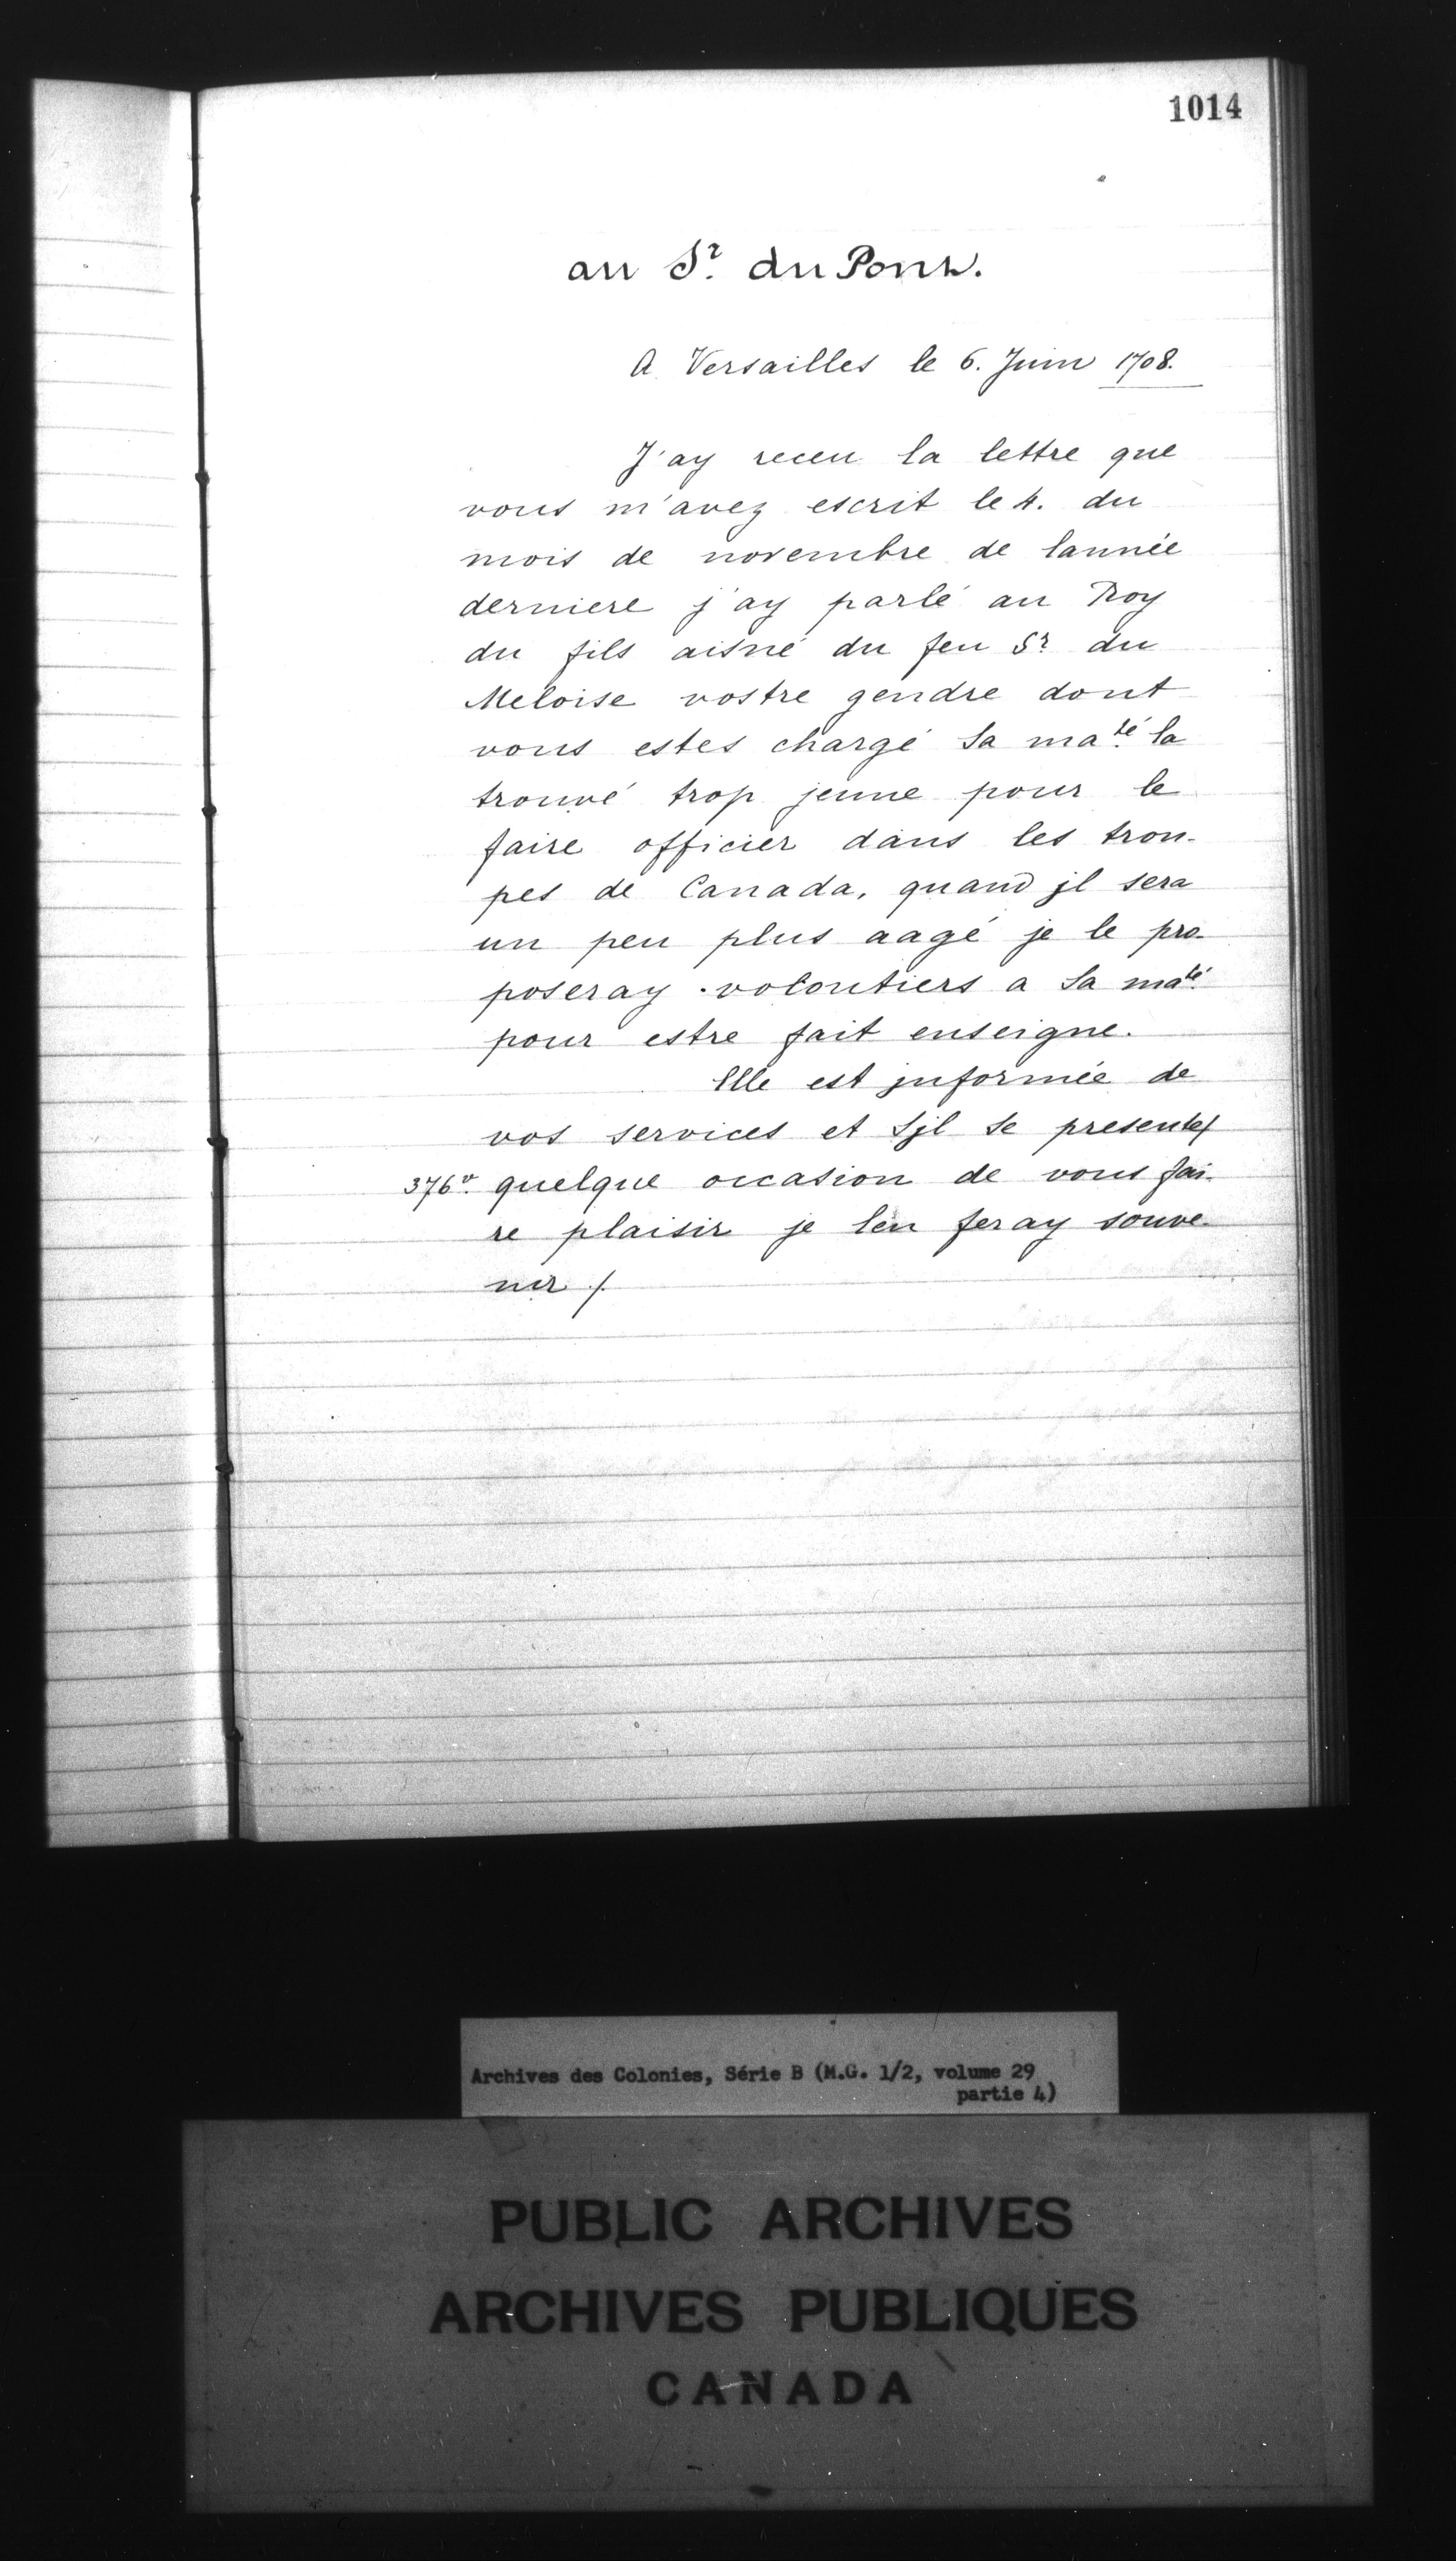 1014
au Sr. du Pont.
A Versailles le 6. Juin 1708.
J'ay receu la lettre que
vous m'avez escrit le 4. du
mois de novembre de lannée
derniere j'ay parlé au Roy
du fils aisné du feu Sr. du
Meloise vostre gendre dont
vous estes chargé sa maté la
trouvé trop jeune pour le
faire officier dans les trou-
pes de Canada, quand jl sera
un peu plus aagé je le pro-
poseray volontiers a sa maté
pour estre fait enseigne.
Elle est jnformée de
vos services et sjl se presente
376v. quelque occasion de vous fai-
re plaisir je l'en feray souve-
nir /.
Archives des Colonies, Série B (M.G. 1/2, volume 29
partie 4)
PUBLIC ARCHIVES
ARCHIVES PUBLIQUES
CANADA